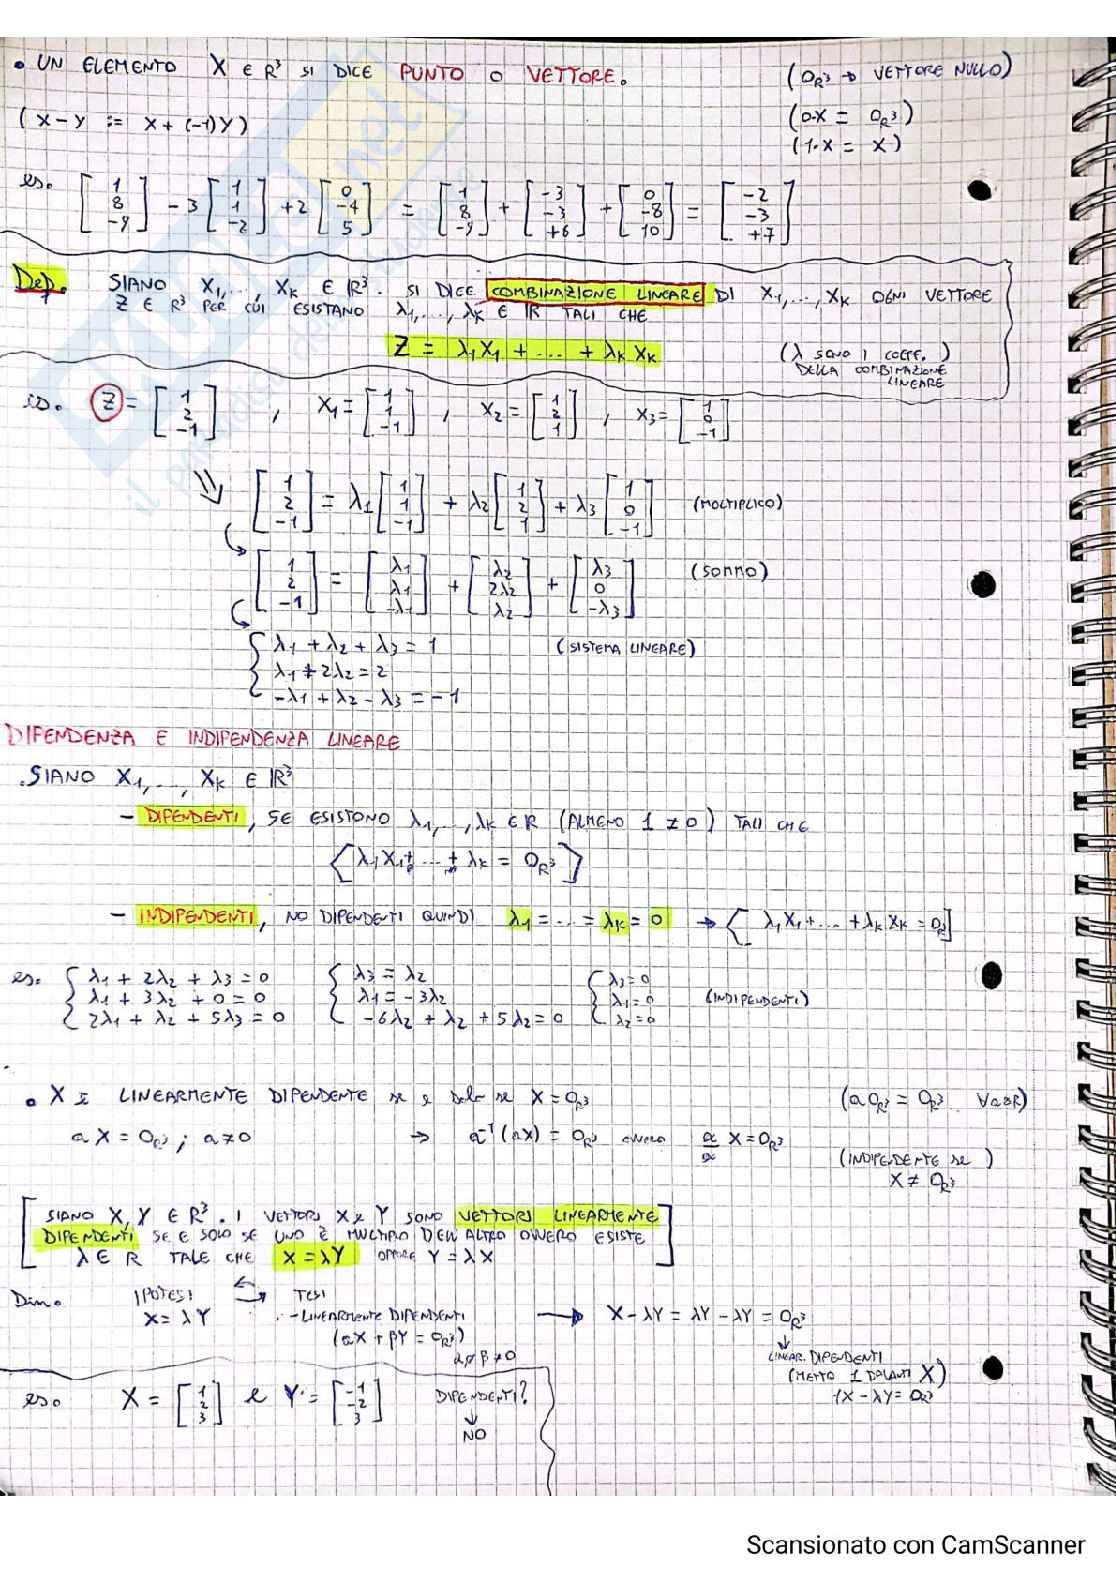 • UN ELEMENTO X ∈ R³ SI DICE PUNTO O VETTORE. (0_R³ → VETTORE NULLO)
(X-Y := X+(-1)Y) (0·X = 0_R³)
(1·X = X)
es. [1 8 -9] - 3 [1 1 -2] + 2 [0 -4 5] = [1 8 -9] + [-3 -3 +6] + [0 -8 10] = [-2 -3 +7]
Def. SIANO X₁,..., X_K ∈ R³. SI DICE COMBINAZIONE LINEARE DI X₁,..., X_K OGNI VETTORE
Z ∈ R³ PER CUI ESISTANO λ₁,..., λ_K ∈ R TALI CHE
Z = λ₁X₁ + ... + λ_K X_K (λ SONO I COEFF.
DELLA COMBINAZIONE
LINEARE)
es. Z = [1 2 -1] , X₁ = [1 1 -1] , X₂ = [1 2 1] , X₃ = [1 0 -1]
[1 2 -1] = λ₁ [1 1 -1] + λ₂ [1 2 1] + λ₃ [1 0 -1] (MOLTIPLICO)
[1 2 -1] = [λ₁ λ₁ -λ₁] + [λ₂ 2λ₂ λ₂] + [λ₃ 0 -λ₃] (SOMMO)
λ₁ + λ₂ + λ₃ = 1 (SISTEMA LINEARE)
λ₁ + 2λ₂ = 2
-λ₁ + λ₂ - λ₃ = -1
DIPENDENZA E INDIPENDENZA LINEARE
. SIANO X₁,..., X_K ∈ R³
- DIPENDENTI, SE ESISTONO λ₁,..., λ_K ∈ R (ALMENO 1 ≠ 0) TALI CHE
λ₁X₁ + ... + λ_K = 0_R³
- INDIPENDENTI, NO DIPENDENTI QUINDI λ₁ = ... = λ_K = 0 → [λ₁X₁ + ... + λ_K X_K = 0_R]
es. λ₁ + 2λ₂ + λ₃ = 0 λ₃ = λ₂ λ₃ = 0
λ₁ + 3λ₂ + 0 = 0 λ₁ = -3λ₂ λ₁ = 0 (INDIPENDENTI)
2λ₁ + λ₂ + 5λ₃ = 0 -6λ₂ + λ₂ + 5λ₂ = 0 λ₂ = 0
• X È LINEARMENTE DIPENDENTE se e solo se X = 0_R³ (a 0_R³ = 0_R³ ∀a∈R)
aX = 0_R³ ; a ≠ 0 → a⁻¹(aX) = 0_R³ ovvero a/a X = 0_R³
(INDIPENDENTE SE
X ≠ 0_R³)
[SIANO X, Y ∈ R³. I VETTORI X e Y SONO VETTORI LINEARMENTE
DIPENDENTI SE E SOLO SE UNO È MULTIPLO DELL'ALTRO OVVERO ESISTE
λ ∈ R TALE CHE X = λY OPPURE Y = λX]
Dim. IPOTESI TESI
X = λY - LINEARMENTE DIPENDENTI → X - λY = λY - λY = 0_R³
(αX + βY = 0_R³)
α o β ≠ 0
LINEAR. DIPENDENTI
(METTO 1 DAVANTI X)
1X - λY = 0_R³
es. X = [1 2 3] e Y = [-1 -2 3] DIPENDENTI?
NO
Scansionato con CamScanner